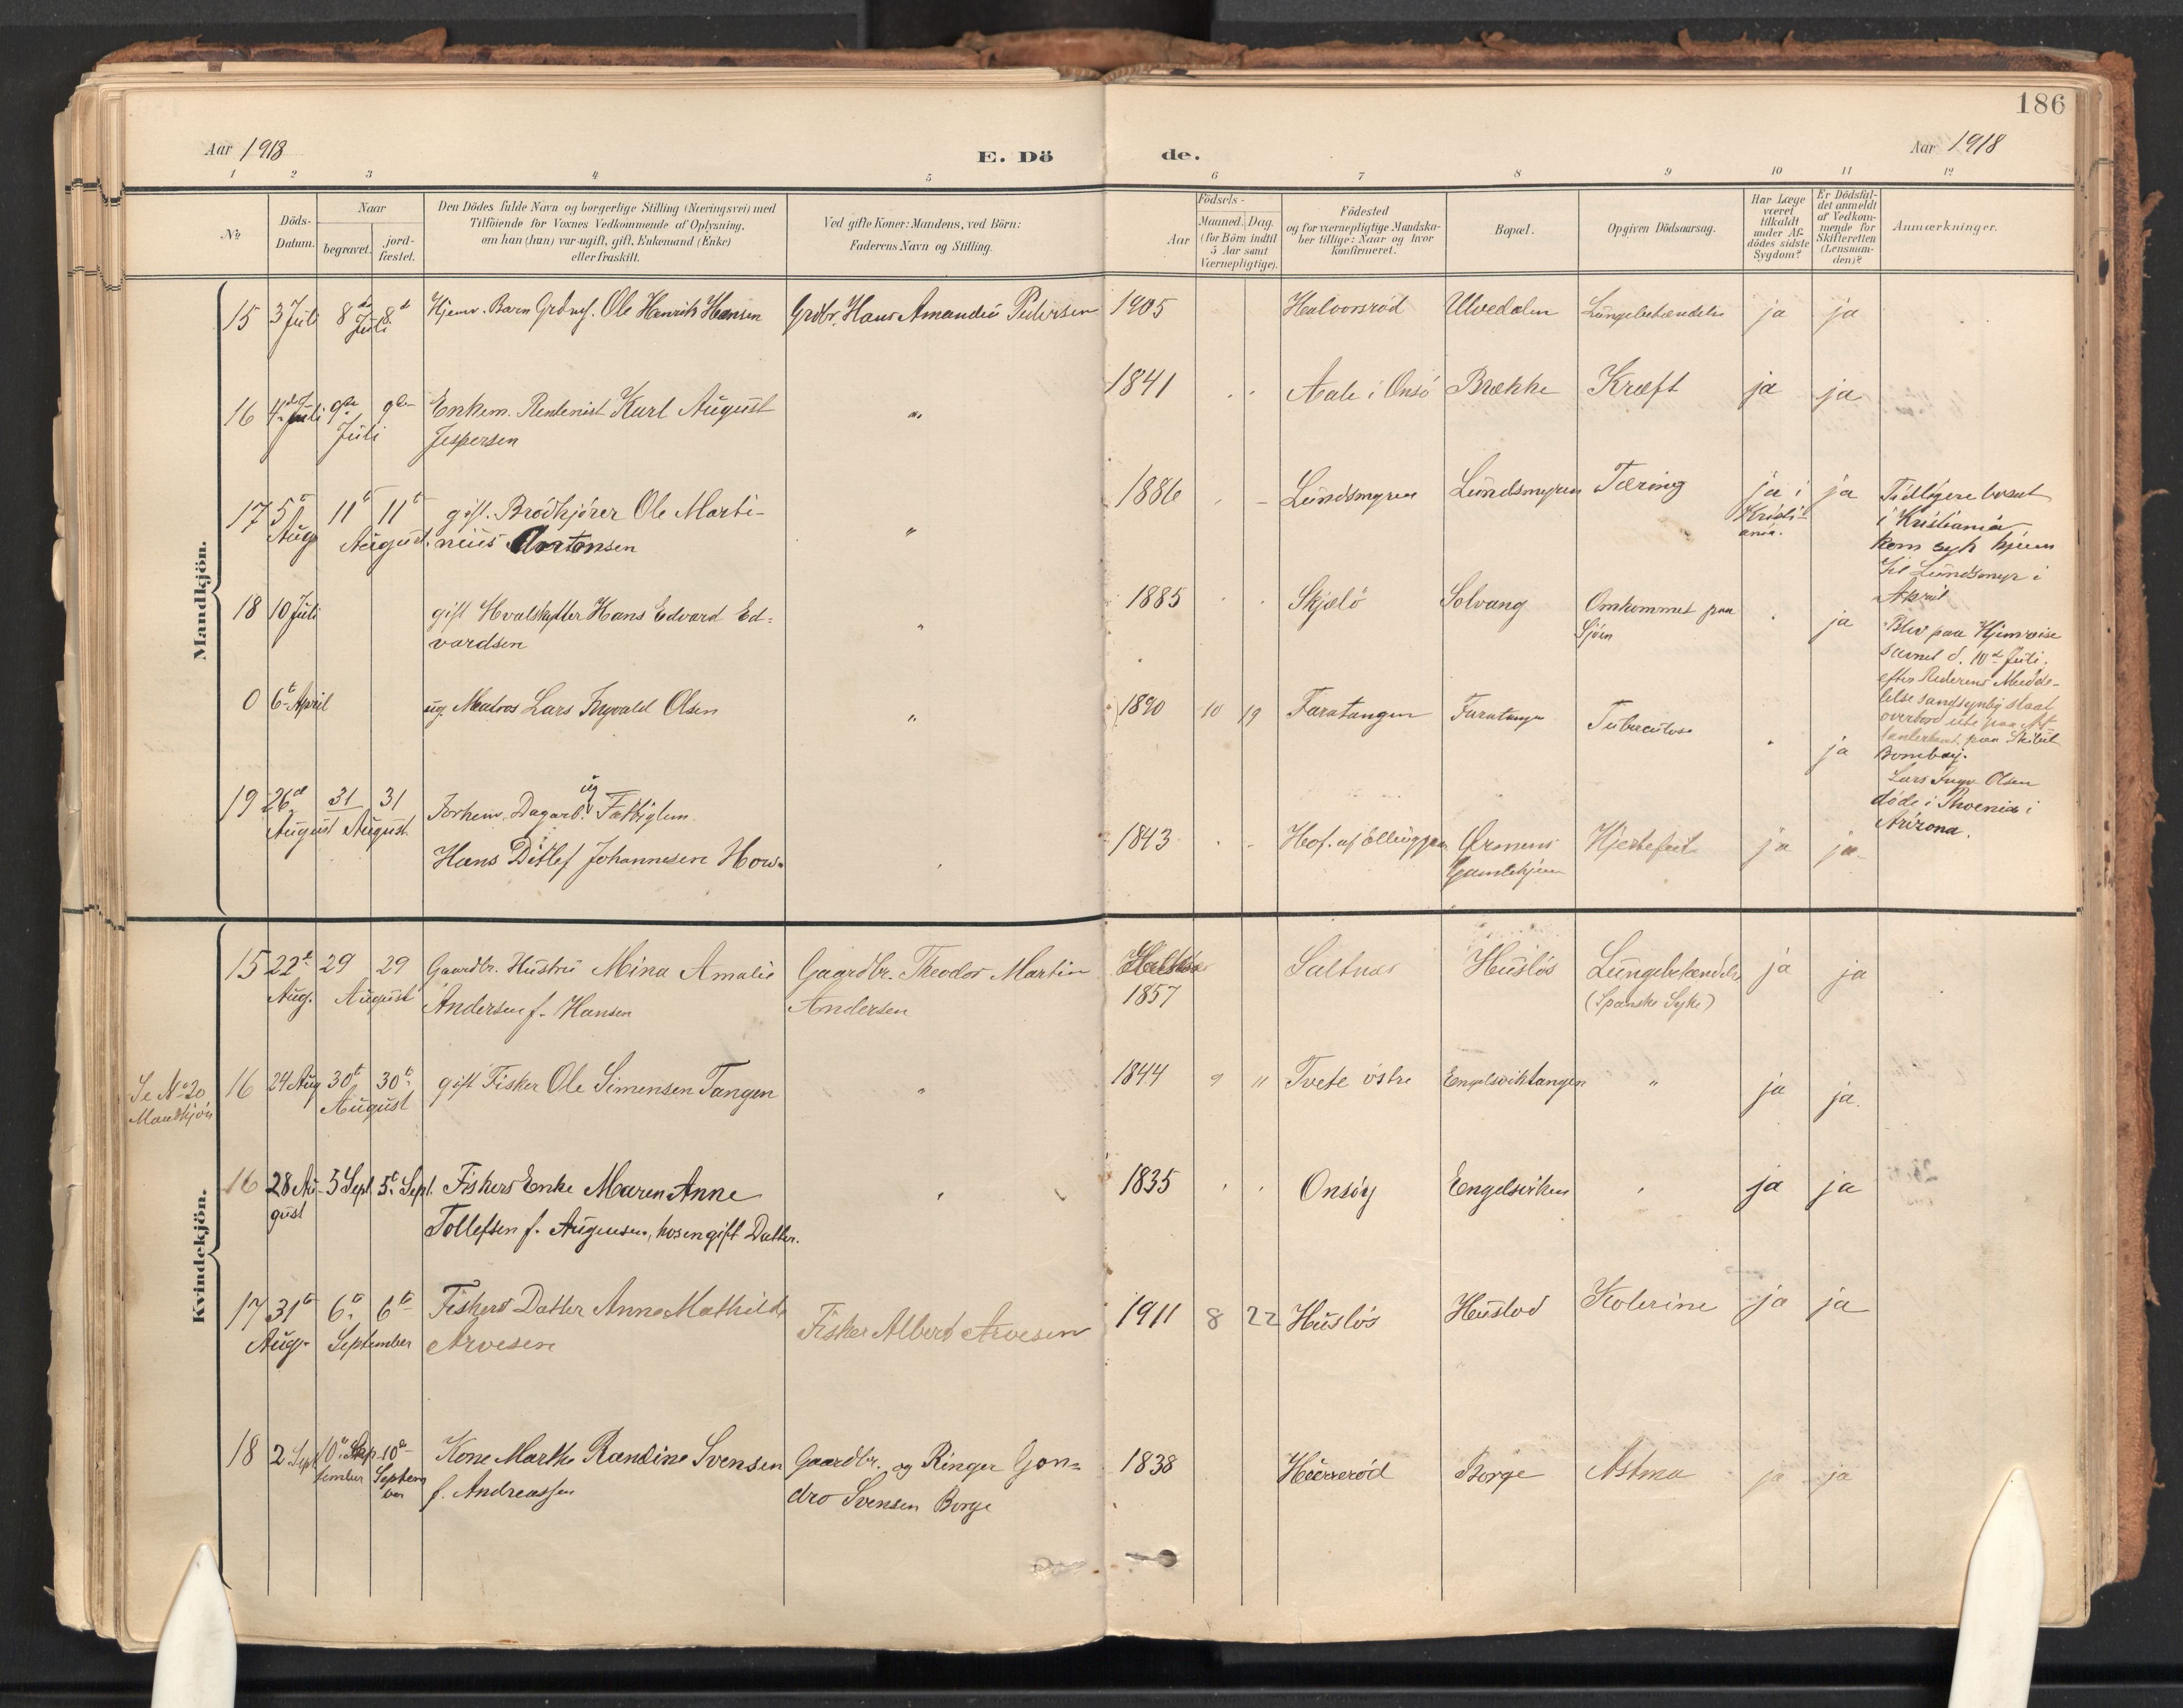 186
Aar 1918
E. Dö
de.
Aar 1918
1 2 3 4 5 6 7 8 9 10 11 12
№
Döds-
Datum.
Naar
begravet.
jord-
fæstet.
Den Dödes fulde Navn og borgerlige Stilling (Næringsvei) med
Tilföiende for Voxnes Vedkommende af Oplysning,
om han (hun) var ugift, gift, Enkemand (Enke)
eller fraskilt.
Ved gifte Koner: Mandens, ved Börn:
Faderens Navn og Stilling.
Födsels-
Aar
Maaned. Dag.
(for Börn indtil
5 Aar samt
Værnepligtige).
Födested
og for værnepligtige Mandska-
ber tillige: Naar og hvor
konfirmeret.
Bopæl.
Opgiven Dödsaarsag.
Har Læge
været
tilkaldt
under Af-
dödes sidste
Sygdom?
Er Dödsfal-
det anmeldt
af Vedkom-
mende for
Skifteretten
(Lensman-
den)?
Anmærkninger.
Mandkjön.
15 3 Juli 8de 8d Hjemv. Barn Ole Henrik Hansen Grdbr. Hans Amandus Pedersen 1905 Halvorsrød Ulvedalen Lungebetændelse ja ja
Juli
16 4de Juli 9de 9de Enkem. Rentenist Karl August " 1841 . . Aale i Onsö Brække Kræft ja ja
Juli Jespersen
17 5t 11t 11t gift. Brödkjörer Ole Marti- " 1886 . - Lundsmyren Lundsmyren Tæring ja i ja
Aug August. nius Antonsen
Kristi-
ania.
Tidligere bosat
i Kristiania
kom syk hjem
til Lundsmyr i
April
18 10 Juli gift Hvalskytter Hans Edvard Ed- " 1885 . . Skjælö Solvang Omkommet paa . ja
vardsen
Sjöen
Blev paa Hjemreise
savnet d. 10de Juli,
efter Rederens Medde-
lelse sandsynlig slaat
overbord ute paa At-
lanterhavet paa Skibet
Bombay.
0 6t April ug. Matros Lars Ingvald Olsen " 1890 10 19 Faratangen Faratangen Tuberculose . ja
Lars Ingv. Olsen
döde i Phoenix i
Arizona.
19 26d 31 31 Forhenv. Dagarb. ug Fattiglem
August August.
Hans Ditlef Johannesen How. 1843 . - Ørmens Hjertefeil ja ja
Gamlehjem
Kvindekjön.
15 22t 29 29 Gaardbr. Hustru Mina Amalie Gaardbr. Theodor Martin Saltnes Huslös Lungebetændelse ja ja
Aug. August Andersen f. Hansen Andersen 1857 (Spanske Syke)
Se No 20
Mandkjön
16 24 Aug 30t 30t gift Fisker Ole Simensen Tangen " 1844 9 11 Tvete östre Engelsviktangen " ja ja.
August
16 28 Au- 5 Sept 5t Sept. Fiskers Enke Maren Anne " 1835 . . Onsöy Engelsviken " ja ja
gust Tollefsen f. Augensen, hos en gift Datter.
17 31te 6te 6te Fiskers Datter Anna Mathilde Fisker Albert Arvesen 1911 8 22 Huslös Huslöd Kolerine ja ja
Aug. September Arvesen
18 2 Sept 10de Sep- 10de Kone Marthe Randine Svensen Gaardbr. og Ringer Gon- 1838 Hæuerød Borge Astma ja ja
tember Septem
ber f. Andreassen dro Svensen Borge